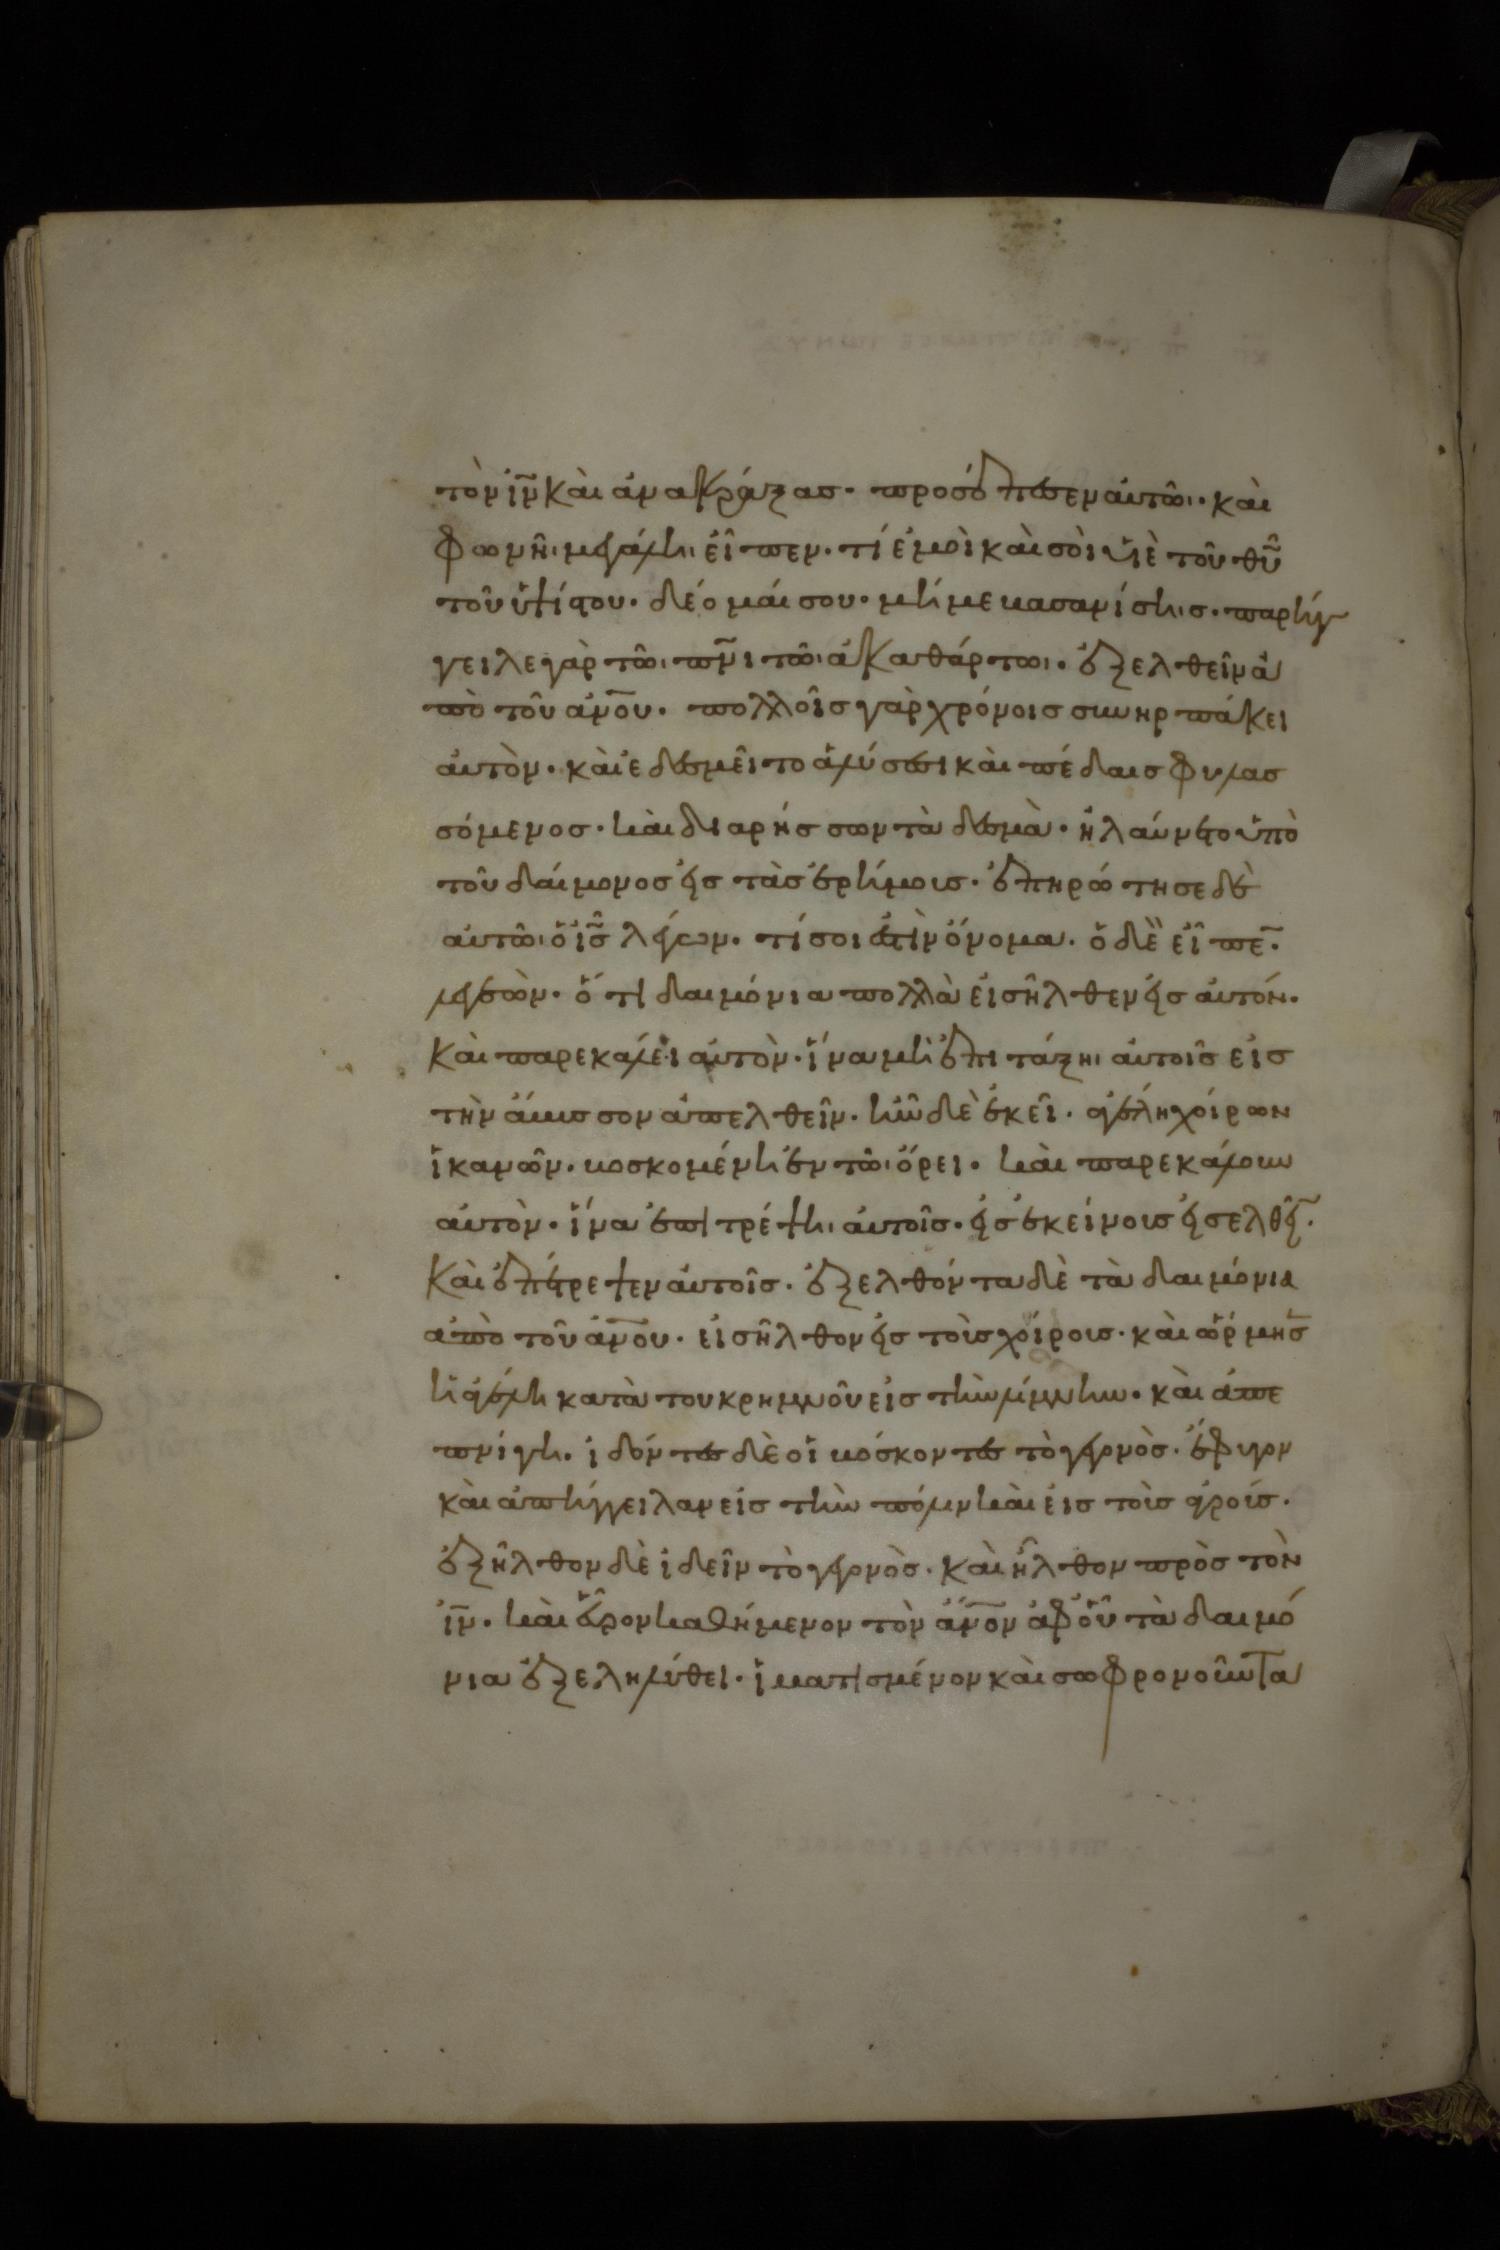 τὸν ἰν̅ καὶ ἀνακράξας· προσέπεσεν αὐτῶι· καὶ
φωνῆι μεγάλη εἶπεν· τί ἐμοὶ καὶ σοὶ υἱὲ τοῦ θυ̅
τοῦ ὑψίστου· δέομαί σου· μή με βασανίσηις· παρήγ
γειλε γὰρ τῶι πν̅ι τῶι ἀκαθάρτωι· ἐξελθεῖν ἀ
πὸ τοῦ ἀν̅ου· πολλοῖς γὰρ χρόνοις συνηρπάκει
αὐτὸν· καὶ ἐδεσμεῖτο ἁλύσεσι καὶ πέδαις φυλασ
σόμενος· καὶ διαρήσσων τὰ δεσμὰ· ἠλαύνετο ὑπὸ
τοῦ δαίμονος εἰς τὰς ἐρήμους· ἐπηρώτησε δὲ
αὐτῶι ὁ ἰς̅ λέγων· τί σοι ἐστὶν ὄνομα· ὁ δὲ εἶπε̅·
λεγεὼν· ὅτι δαιμόνια πολλὰ εἰσῆλθεν εἰς αὐτόν·
καὶ παρεκάλει αὐτὸν· ἵνα μὴ ἐπιτάξηι αὐτοῖς εἰς
τὴν ἄβυσσον ἀπελθεῖν· ἦν δὲ ἐκεῖ· ἀγέλη χοίρων
ἱκανῶν· βοσκομένη ἐν τῶι ὄρει· καὶ παρεκάλουν
αὐτὸν· ἵνα ἐπιτρέψηι αὐτοῖς· εἰς ἐκείνους εἰσελθεῖ̅·
καὶ ἐπέτρεψεν αὐτοῖς· ἐξελθόντα δὲ τὰ δαιμόνια
ἀπὸ τοῦ ἀν̅ου· εἰσῆλθον εἰς τοὺς χοίρους· καὶ ὥρμησ̅
ἡ ἀγέλη κατὰ του κρημνοῦ εἰς τὴν λίμνην· καὶ ἀπε
πνίγη· ἰδόντες δὲ οἱ βόσκοντες τὸ γεγονὸς· ἔφυγον
καὶ ἀπήγγειλαν εἰς τὴν πόλιν καὶ εἰς τοὺς ἀγρούς·
ἐξῆλθον δὲ ἰδεῖν τὸ γεγονὸς· καὶ ἦλθον πρὸς τὸν
ἰν̅· καὶ εὗρον καθήμενον τὸν ἄν̅ον ἀφ' οὗ τὰ δαιμό
νια ἐξεληλύθει· ἱματισμένον καὶ σωφρονοῦντα